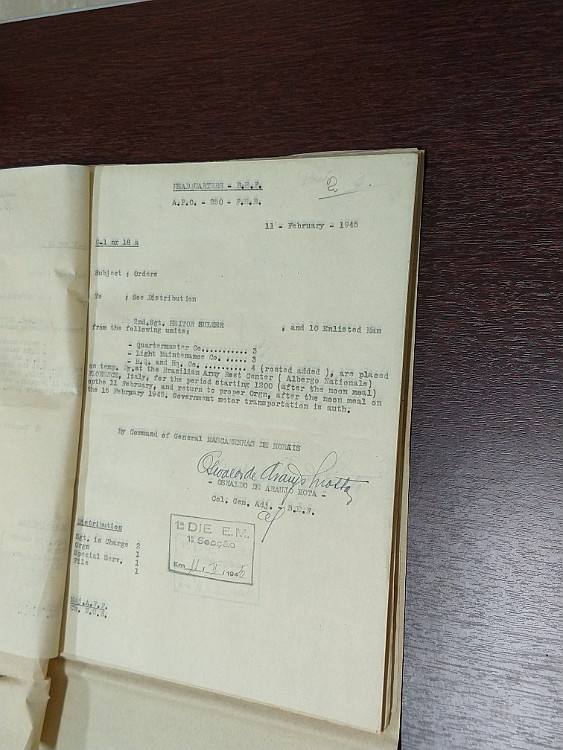 HEADQUARTERS - B.E.F.
2
A.P.O. - 250 - F.E.B.
11 - February - 1945
G-1 nr 18 a
Subject : Orders
To : See Distribution
2nd.Sgt. HEITOR , and 10 Enlisted Man
from the following units:
- Quartermaster Co........... 3
- Light Maintenance Co. ..... 3
- H.Q. and Hq. Co. .......... 4 (rosted added ), are placed
on temp. Dy.at the Brazilian Army Rest Center ( Albergo Nationale)
FLORENCE, Italy, for the period starting 1200 (after the noon meal)
onthe 11 February, and return to proper Orgn, after the noon meal on
the 15 February 1945. Government motor transportation is auth.
By Command of General MASCARENHAS DE MORAIS
Osvaldo de Araujo Motta
- OSWALDO DE ARAUJO MOTA -
Col. Gen. Adj. - B.E.F.
Distribution
Sgt. in Charge 2
Orgn 1
Special Serv. 1
File 1
1ª DIE E.M.
1ª Secção
Em 11, II, 1945